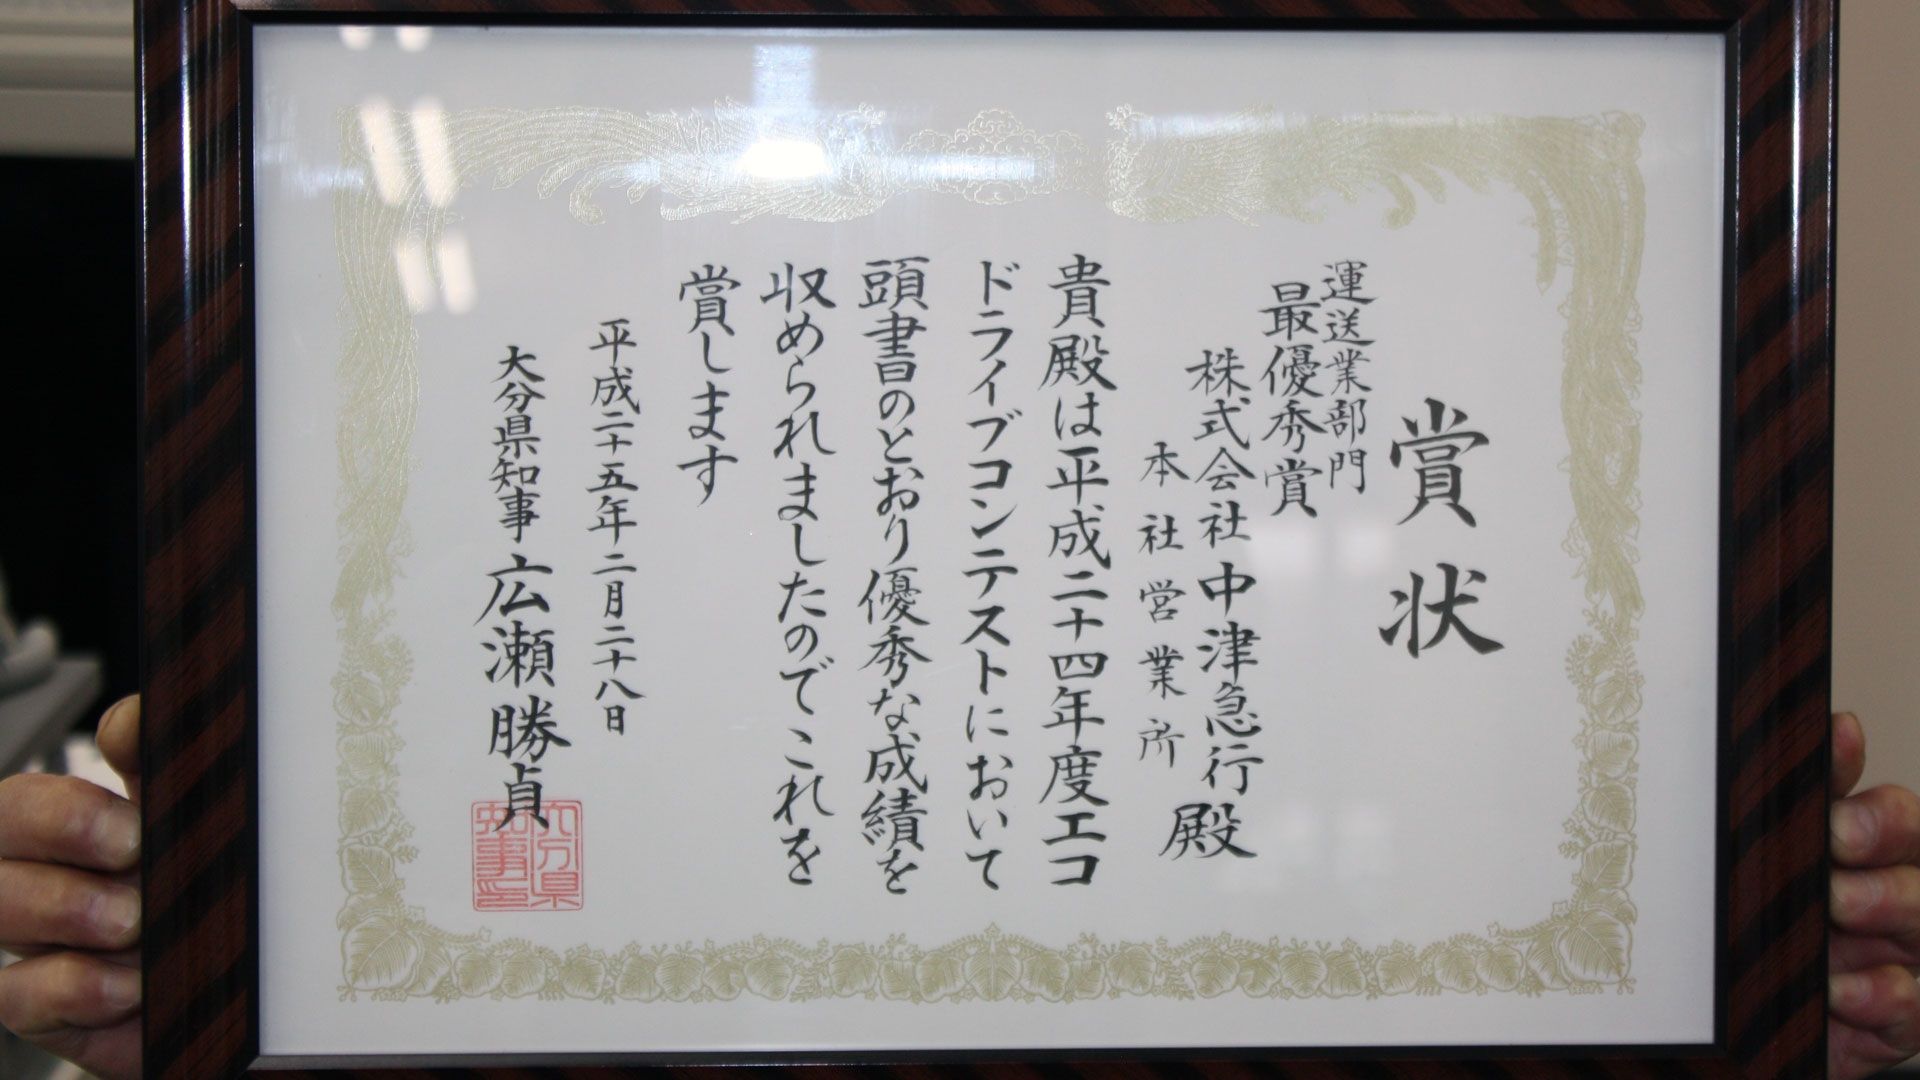 賞状
運送業部門
最優秀賞
株式会社中津急行
本社営業所 殿
貴殿は平成二十四年度エコ
ドライブコンテストにおいて
頭書のとおり優秀な成績を
収められましたのでこれを
賞します
平成二十五年二月二十八日
大分県知事 広瀬勝貞
大分県
知事印